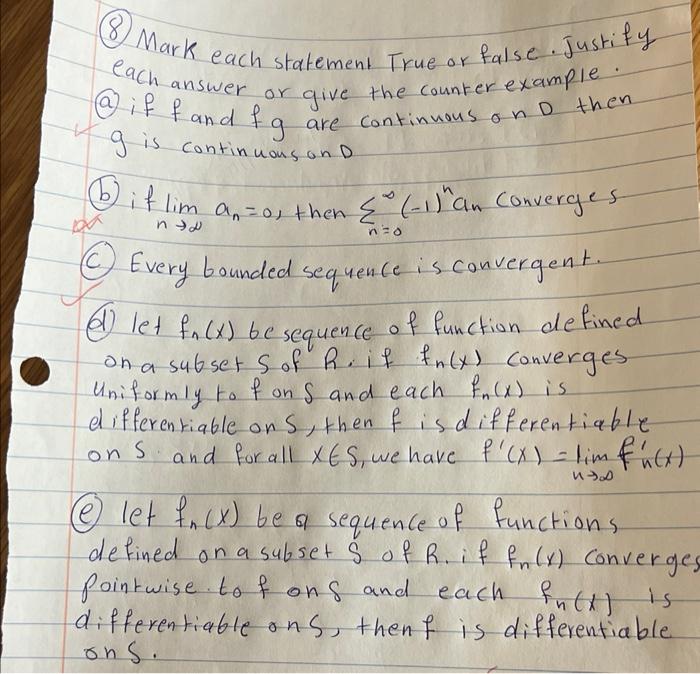 ⑧ Mark each statement True or false. Justify
each answer or give the counter example.
ⓐ if f and fg are continuous on D then
g is continuous on D
ⓑ if lim n→∞ aₙ=0, then Σ^∞ n=0 (-1)ⁿ aₙ converges
ⓒ Every bounded sequence is convergent.
ⓓ let fₙ(x) be sequence of function defined
on a subset S of R. if fₙ(x) converges
uniformly to f on S and each fₙ(x) is
differentiable on S, then f is differentiable
on S and for all x∈S, we have f'(x) = lim n→∞ f'ₙ(x)
ⓔ let fₙ(x) be a sequence of functions
defined on a subset S of R. if fₙ(x) converges
pointwise to f on S and each fₙ(x) is
differentiable on S, then f is differentiable
on S.